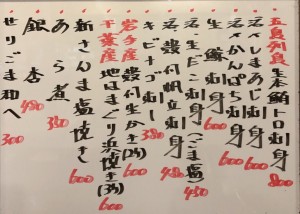 五島列島 生本鮪トロ刺身 800
活〆しまあじ刺身 600
活〆かんぱち刺身 600
生鱈刺身(ごま塩) 450
活殻付帆立刺身 480
キビナゴ刺し 380
岩手産 殻付生かき(2ヶ) 600
千葉産 地はまぐり浜焼き(3ヶ) 600
新さんま塩焼き 600
あら煮 380
銀杏 480
せりごま和へ 300